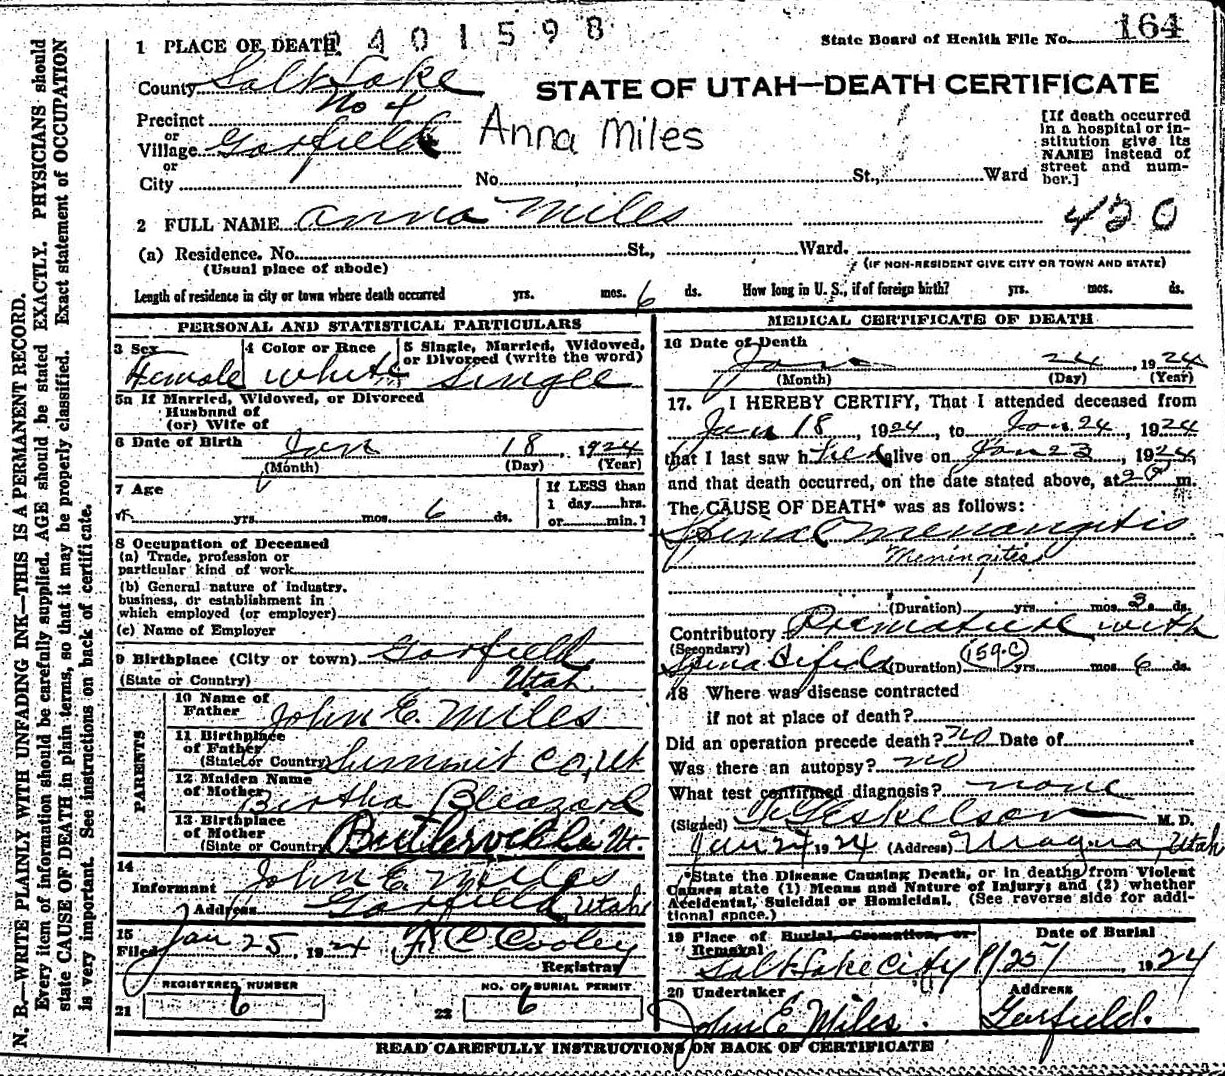 2401598
164
1 PLACE OF DEATH
State Board of Health File No.
County Salt Lake
STATE OF UTAH—DEATH CERTIFICATE
No 4
Precinct
or
Village Garfield
Anna Miles
or
City No. St., Ward
[If death occurred
in a hospital or in-
stitution give its
NAME instead of
street and num-
ber.]
2 FULL NAME Anna Miles
420
(a) Residence. No. St., Ward.
(Usual place of abode) (IF NON-RESIDENT GIVE CITY OR TOWN AND STATE)
Length of residence in city or town where death occurred yrs. mos. 6 ds. How long in U. S., if of foreign birth? yrs. mos. ds.
PERSONAL AND STATISTICAL PARTICULARS
3 Sex 4 Color or Race 5 Single, Married, Widowed,
or Divorced (write the word)
Female White Single
5a If Married, Widowed, or Divorced
Husband of
(or) Wife of
6 Date of Birth Jan 18, 1924
(Month) (Day) (Year)
7 Age If LESS than
1 day hrs.
yrs. mos. 6 ds. or min.?
8 Occupation of Deceased
(a) Trade, profession or
particular kind of work
(b) General nature of industry,
business, or establishment in
which employed (or employer)
(c) Name of Employer
9 Birthplace (City or town) Garfield
(State or Country) Utah.
PARENTS
10 Name of
Father John E. Miles
11 Birthplace
of Father
(State or Country) Summit Co, Ut
12 Maiden Name
of Mother Bertha Bleazard
13 Birthplace
of Mother
(State or Country) Butlerville Ut.
14
Informant John E Miles
Address Garfield, Utah
15
Filed Jan 25, 1924 Cooley
Registrar
REGISTERED NUMBER NO. OF BURIAL PERMIT
21 6 22 6
MEDICAL CERTIFICATE OF DEATH
16 Date of Death
Jan 24, 1924
(Month) (Day) (Year)
17. I HEREBY CERTIFY, That I attended deceased from
Jan 18, 1924, to Jan 24, 1924
that I last saw h her alive on Jan 23, 1924,
and that death occurred, on the date stated above, at 2 P m.
The CAUSE OF DEATH* was as follows:
Spinal Menangitis
Meningites
(Duration) yrs. mos. 3 ds.
Contributory Premature with
(Secondary)
Spina Bifida (Duration) (159.C) yrs. mos. 6 ds.
18 Where was disease contracted
if not at place of death?
Did an operation precede death? no Date of
Was there an autopsy? no
What test confirmed diagnosis? none
(Signed) Eskelson M. D.
Jan 24 1924 (Address) Magna, Utah
*State the Disease Causing Death, or in deaths from Violent
Causes state (1) Means and Nature of Injury; and (2) whether
Accidental, Suicidal or Homicidal. (See reverse side for addi-
tional space.)
19 Place of Burial, Cremation, or
Removal Date of Burial
Salt Lake City 1/25/ 1924
20 Undertaker Address
John E Miles. Garfield.
READ CAREFULLY INSTRUCTIONS ON BACK OF CERTIFICATE
N. B.—WRITE PLAINLY WITH UNFADING INK—THIS IS A PERMANENT RECORD.
Every item of information should be carefully supplied. AGE should be stated EXACTLY. PHYSICIANS should
state CAUSE OF DEATH in plain terms, so that it may be properly classified. Exact statement of OCCUPATION
is very important. See instructions on back of certificate.